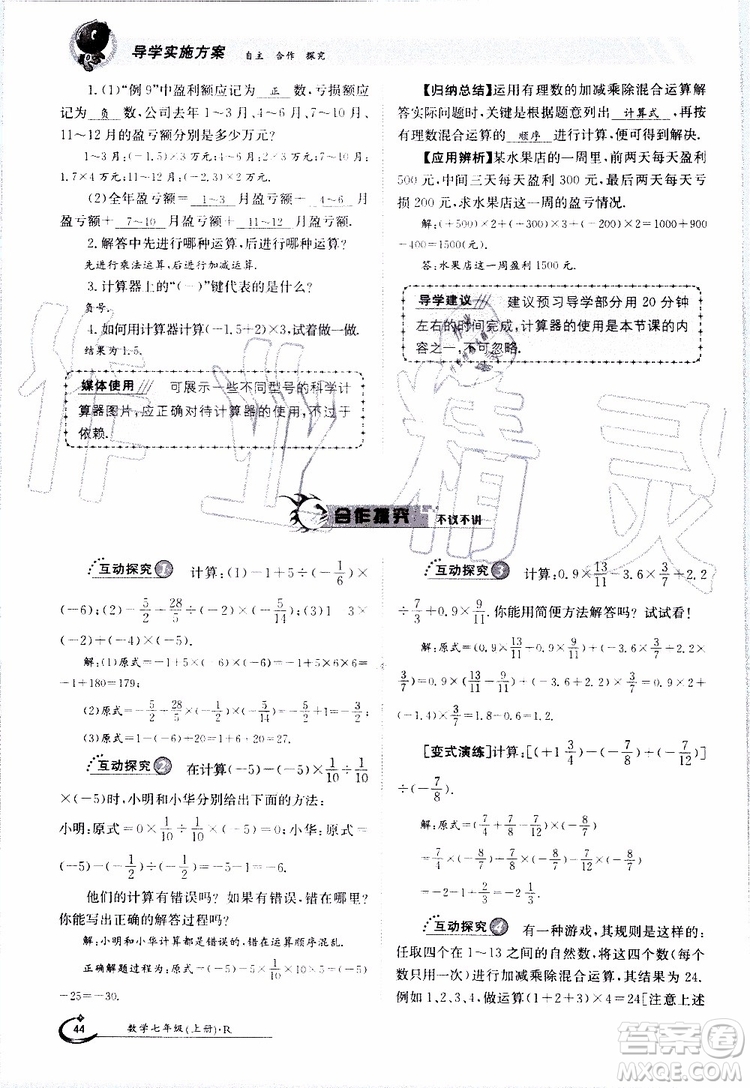 导学实施方案 自主 合作 探究
1.(1)“例9”中盈利额应记为 正 数，亏损额应
记为 负 数，公司去年1~3月、4~6月、7~10月、
11~12月的盈亏额分别是多少万元？
1~3月：(-1.5)×3万元；4~6月：2×3万元；7~10月：
1.7×4万元；11~12月：(-2.3)×2万元.
(2)全年盈亏额= 1~3月 盈亏额+ 4~6月
盈亏额+ 7~10月 盈亏额+ 11~12月 盈亏额.
2.解答中先进行哪种运算，再进行哪种运算？
先进行乘法运算，再进行加减运算.
3.计算器上的“(-)”键代表的是什么？
负号.
4.如何用计算器计算(-1.5+2)×3，试着做一做.
结果为1.5.
媒体使用 可展示一些不同型号的科学计
算器图片，应正确对待计算器的使用，不过于
依赖.
【归纳总结】运用有理数的加减乘除混合运算解
答实际问题时，关键是根据题意列出 计算式 ，再按
有理数混合运算的 顺序 进行计算.
【应用辨析】某水果店的一周里，前两天每天盈利
500元，中间三天每天盈利300元，最后两天每天亏
损200元，求水果店这一周的盈亏情况.
解：(+500)×2+(+300)×3+(-200)×2=1000+900
-400=1500(元).
答：水果店这一周盈利1500元.
导学建议 建议预习导学部分用20分钟
左右的时间完成，计算器的使用是本节课的内
容之一，不可忽略.
合作探究 不议不讲
互动探究 1 计算：(1)-1+5÷(-1/6)
×(-6)；(2)-5/2+28/5÷(-2)×(-5/14)；(3)1×(-1)
÷(-2)+(-4)÷(-5).
互动探究 2 在计算(-5)-(-5)×1/10÷1/10
×(-5)时，小明和小华分别给出下面的方法：
他们的计算有错误吗？如果有错误，错在哪里？
你能写出正确的解答过程吗？
解：小明和小华计算都是错误的，错在运算顺序混乱.
-25=-30.
互动探究 3 计算：0.9×13/11-3.6×3/7+2.2
÷7/3+0.9×9/11.你能用简便方法解答吗？试试看！
解：原式=(0.9×13/11+0.9×9/11)+(-3.6×3/7+2.2×
3/7)=0.9×(13/11+9/11)+(-3.6+2.2)×3/7=0.9×2+
(-1.4)×3/7=1.8-0.6=1.2.
[变式演练]计算：[(+1 3/4)-(-7/8)÷(-7/12)]
÷(-7/8).
互动探究 4 有一种游戏，其规则是这样的：
任取四个1~13之间的自然数，将这四个数(每个数
只用一次)进行加减乘除混合运算，使其结果等于
24.例如1，2，3，4，可做运算(1+2+3)×4[注意上述
44 数学七年级(上册)·R
作业精灵